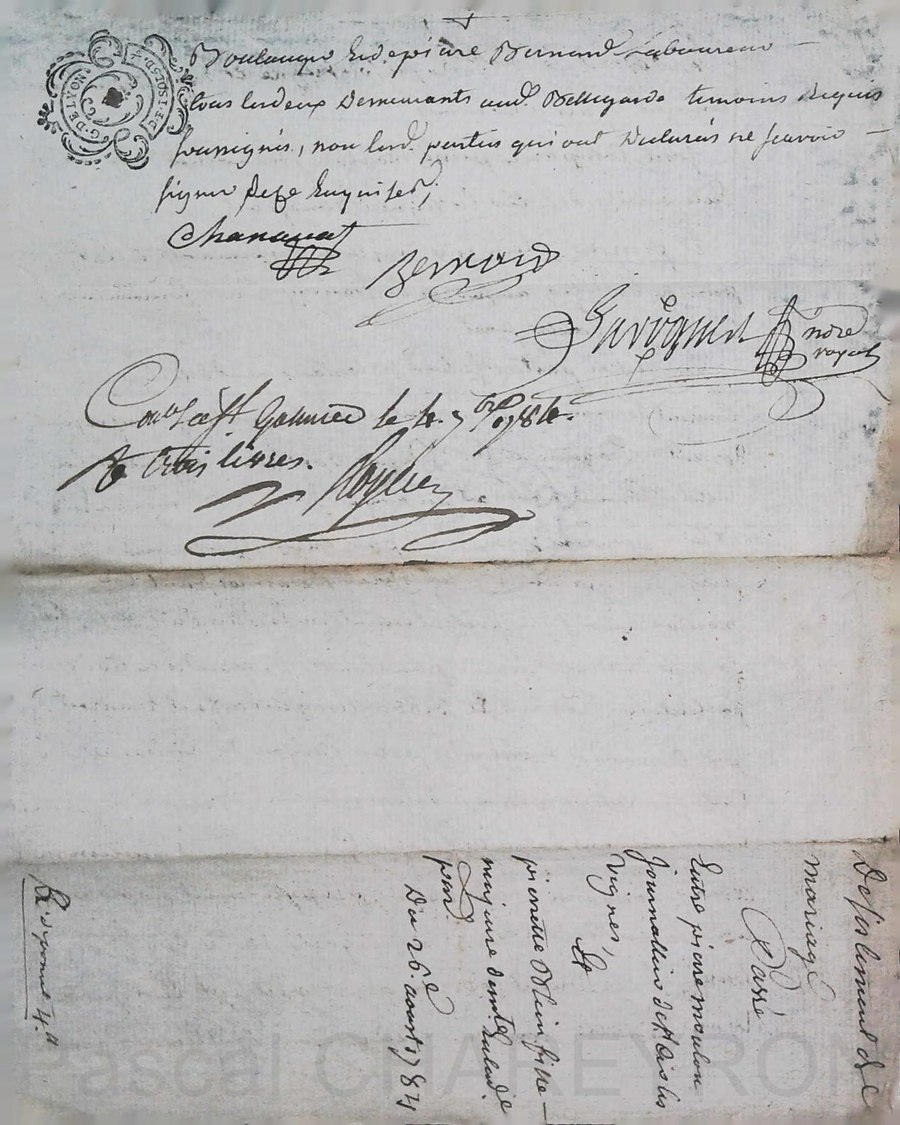 G. DE LYON.
Boulanger Et de pierre Bernard Laboureur
tous Lesdeux Demeurants aud. Bellegarde temoins Requis
soussignés, non lesd. parties qui ont Declarés ne scavoir
signer De Ce Enquises,
Chanavat
Bernard
nore
royal
Conte à St Galmier le 4. 7bre 1784.
Rx trois livres.
Desistement de
mariage
Passé
Entre pierre moulon
Journallier de St Cir les
vignes,
Et
pierrette Blein fille
majeure de
par.
Du 26. aoust 1784
Pascal CHAREYRON